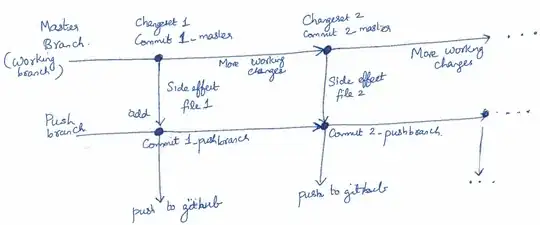 Master
Branch.
(Working
branch)
Changeset 1
Commit 1_master
Changeset 2
Commit 2_master
More working
changes
More working
changes
. . .
Side effect
file 1
Side effect
file 2
add
Push
branch
Commit 1_pushbranch
Commit 2_pushbranch
. . . .
push to github
push to github
. . .